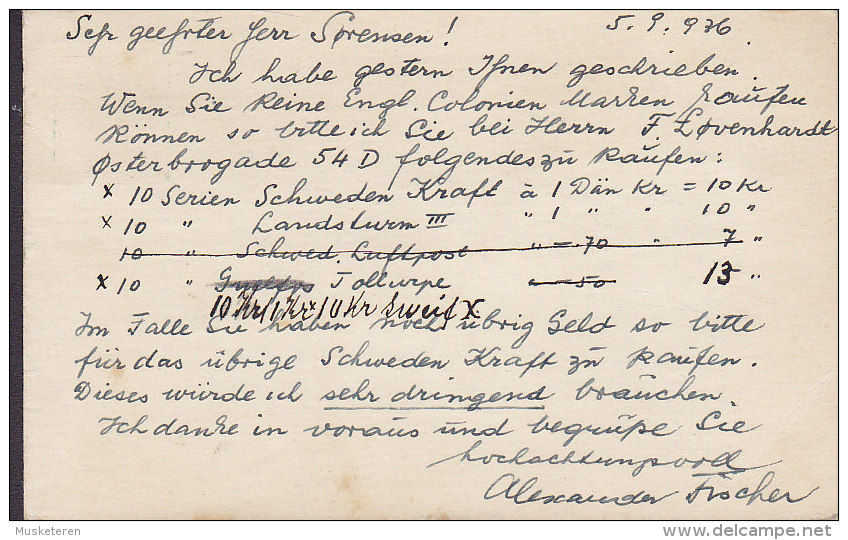 Sehr geehrter Herr Sørensen! 5. 9. 936
Ich habe gestern Ihnen geschrieben.
Wenn Sie keine Engl. Colonien Marken kaufen
können so bitte ich Sie bei Herrn F. Løvenhardt
Østerbrogade 54 D folgendes zu kaufen:
x 10 Serien Schweden Kraft à 1 Dän Kr = 10 Kr
x 10 " Landsturm III " 1 " " 10 "
10 " Schwed. Luftpost " = .70 " 7 "
x 10 " Tollurpe 50 13 "
10 Kr 10 Kr
Im Falle Sie haben noch übrig Geld so bitte
für das übrige Schweden Kraft zu kaufen.
Dieses würde ich sehr dringend brauchen.
Ich danke in voraus und begrüße Sie
hochachtungsvoll
Alexander Fischer
Musketeren
delcampe.net